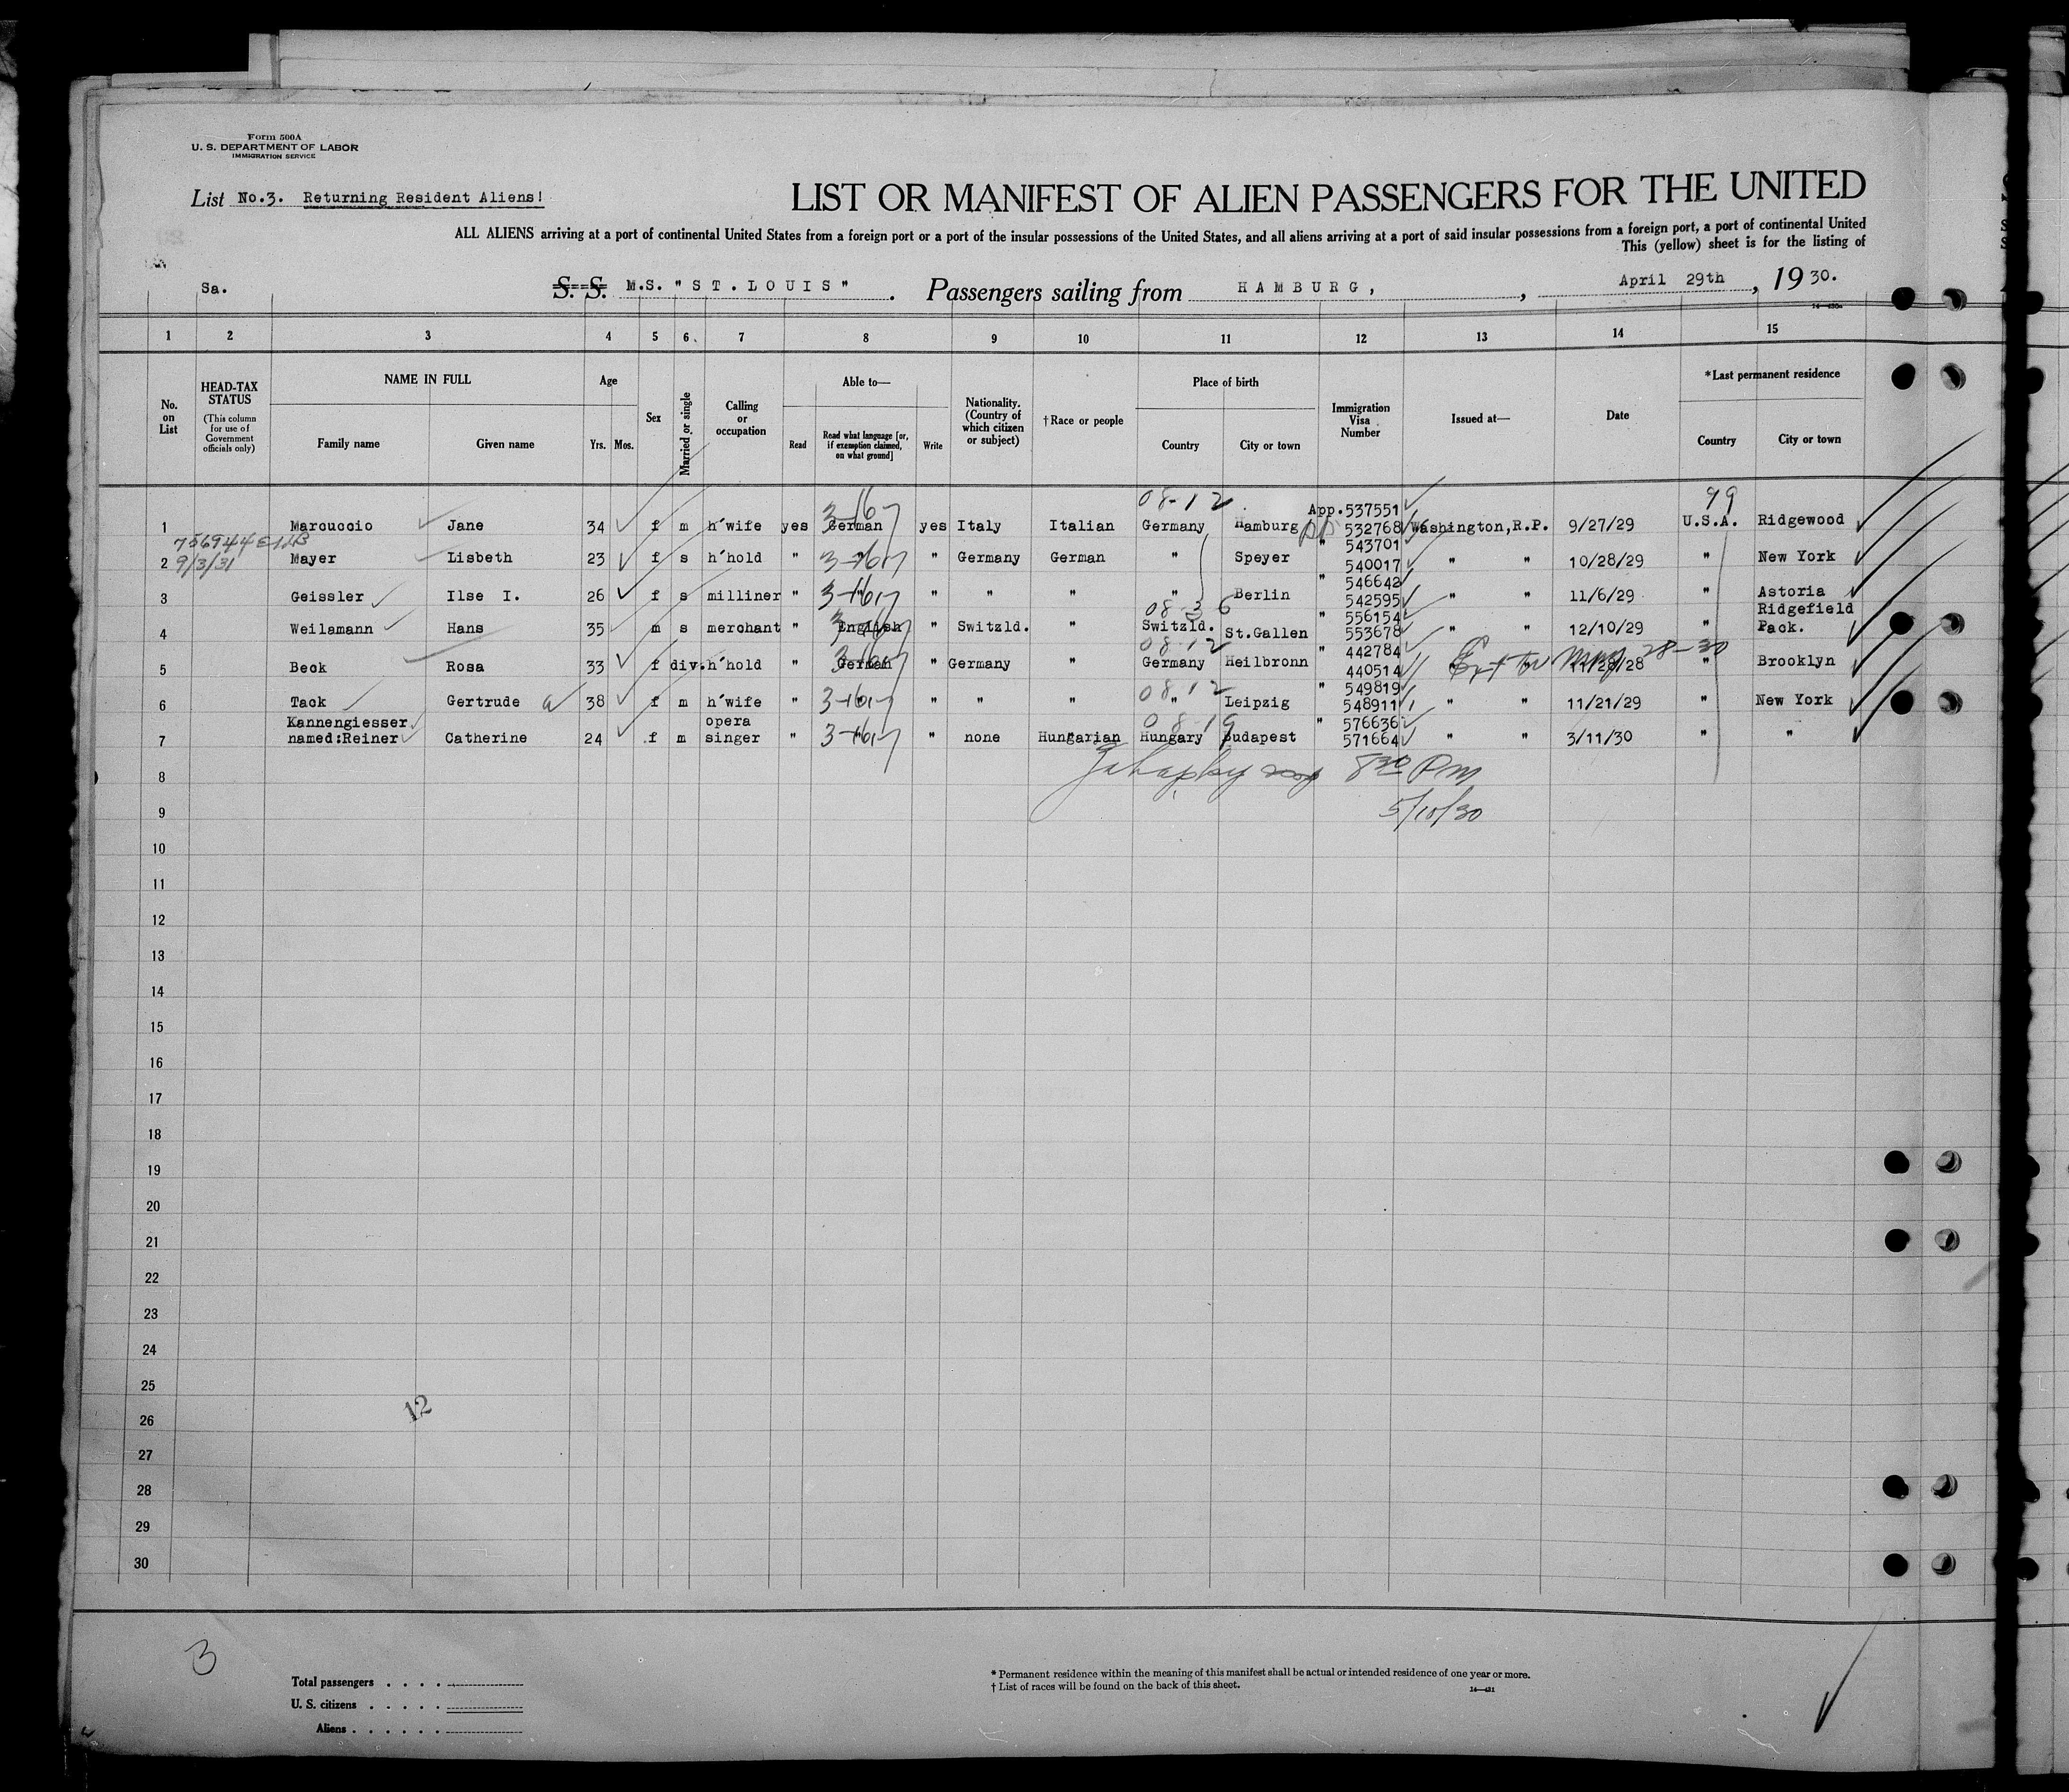 Form 500A
U. S. DEPARTMENT OF LABOR
IMMIGRATION SERVICE
List No.3. Returning Resident Aliens!
LIST OR MANIFEST OF ALIEN PASSENGERS FOR THE UNITED
ALL ALIENS arriving at a port of continental United States from a foreign port or a port of the insular possessions of the United States, and all aliens arriving at a port of said insular possessions from a foreign port, a port of continental United
This (yellow) sheet is for the listing of
Sa. S. S. M.S. "ST.LOUIS" . Passengers sailing from HAMBURG, , April 29th , 1930.
14—430a
1 2 3 4 5 6 7 8 9 10 11 12 13 14 15
No. on List
HEAD-TAX STATUS (This column for use of Government officials only)
NAME IN FULL Family name Given name
Age Yrs. Mos.
Sex
Married or single
Calling or occupation
Able to— Read Read what language [or, if exemption claimed, on what ground] Write
Nationality. (Country of which citizen or subject)
†Race or people
Place of birth Country City or town
Immigration Visa Number
Issued at—
Date
*Last permanent residence Country City or town
3-167 08-12 App.537551 99
1 Marcuccio Jane 34 f m h'wife yes German yes Italy Italian Germany Hamburg 532768 Washington,R.P. 9/27/29 U.S.A. Ridgewood
756944 " 543701
2 9/3/31 Mayer Lisbeth 23 f s h'hold " 3-167 " Germany German " Speyer 540017 " " 10/28/29 " New York
" 546642
3 Geissler Ilse I. 26 f s milliner " 3-167 " " " " Berlin 542595 " " 11/6/29 " Astoria
08-36 " 556154 Ridgefield
4 Weilamann Hans 35 m s merchant " English " Switzld. " Switzld. St.Gallen 553678 " " 12/10/29 " Pack.
08-12 " 442784 Ext to May 28-30
5 Beck Rosa 33 f div. h'hold " German " Germany " Germany Heilbronn 440514 " " 11/28/28 " Brooklyn
08-12 " 549819
6 Tack Gertrude 38 f m h'wife " 3-167 " " " " Leipzig 548911 " " 11/21/29 " New York
Kannengiesser opera 08-19 " 576636
7 named:Reiner Catherine 24 f m singer " 3-167 " none Hungarian Hungary Budapest 571664 " " 3/11/30 " "
8 8 30 PM
9 5/10/30
10
11
12
13
14
15
16
17
18
19
20
21
22
23
24
25
12
26
27
28
29
30
3
Total passengers . . . .
U. S. citizens . . . . .
Aliens . . . . . .
* Permanent residence within the meaning of this manifest shall be actual or intended residence of one year or more.
† List of races will be found on the back of this sheet.
14—431